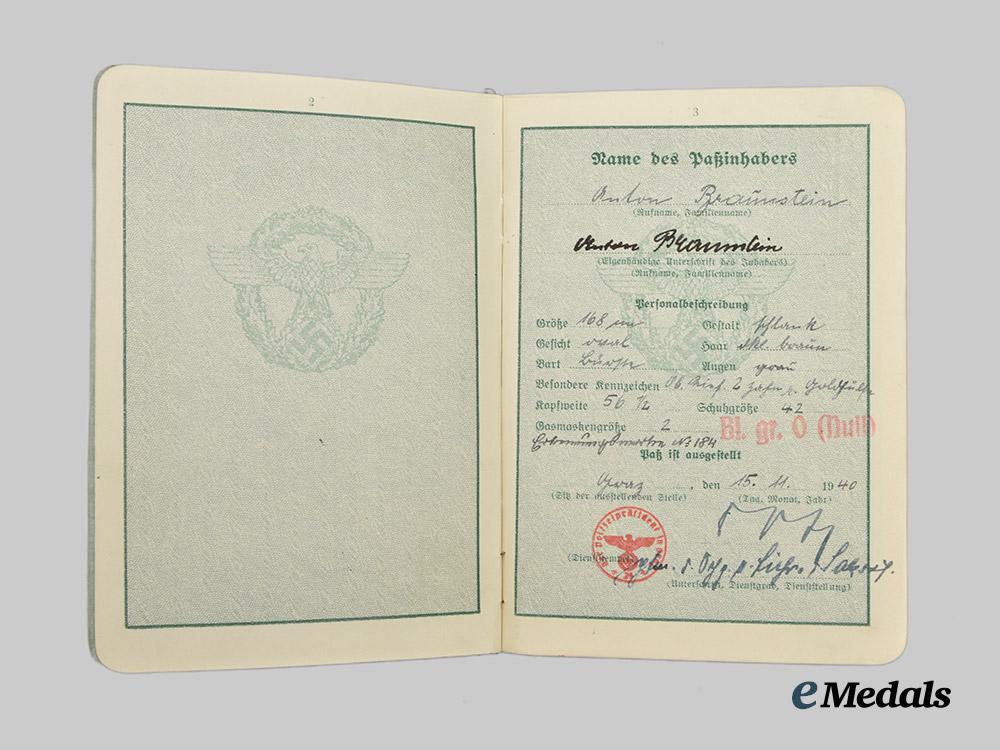 2
3
Name des Paßinhabers
Anton Braunstein
(Rufname, Familienname)
Anton Braunstein
(Eigenhändige Unterschrift des Inhabers)
(Rufname, Familienname)
Personalbeschreibung
Größe 168 cm Gestalt schlank
Gesicht oval Haar dkl. braun
Bart Bürste Augen grau
Besondere Kennzeichen Ob. Kief. 2 Zahn Goldhülse
Kopfweite 56 1/2 Schuhgröße 42
Gasmaskengröße 2 Bl. gr. O (Null)
Erkennungsmarke Nr 184
Paß ist ausgestellt
Graz, den 15. 11. 1940
(Sitz der ausstellenden Stelle) (Tag, Monat, Jahr)
Der Polizeipräsident in Graz
(Dienststempel)
(Unterschrift, Dienstgrad, Dienststellung)
eMedals